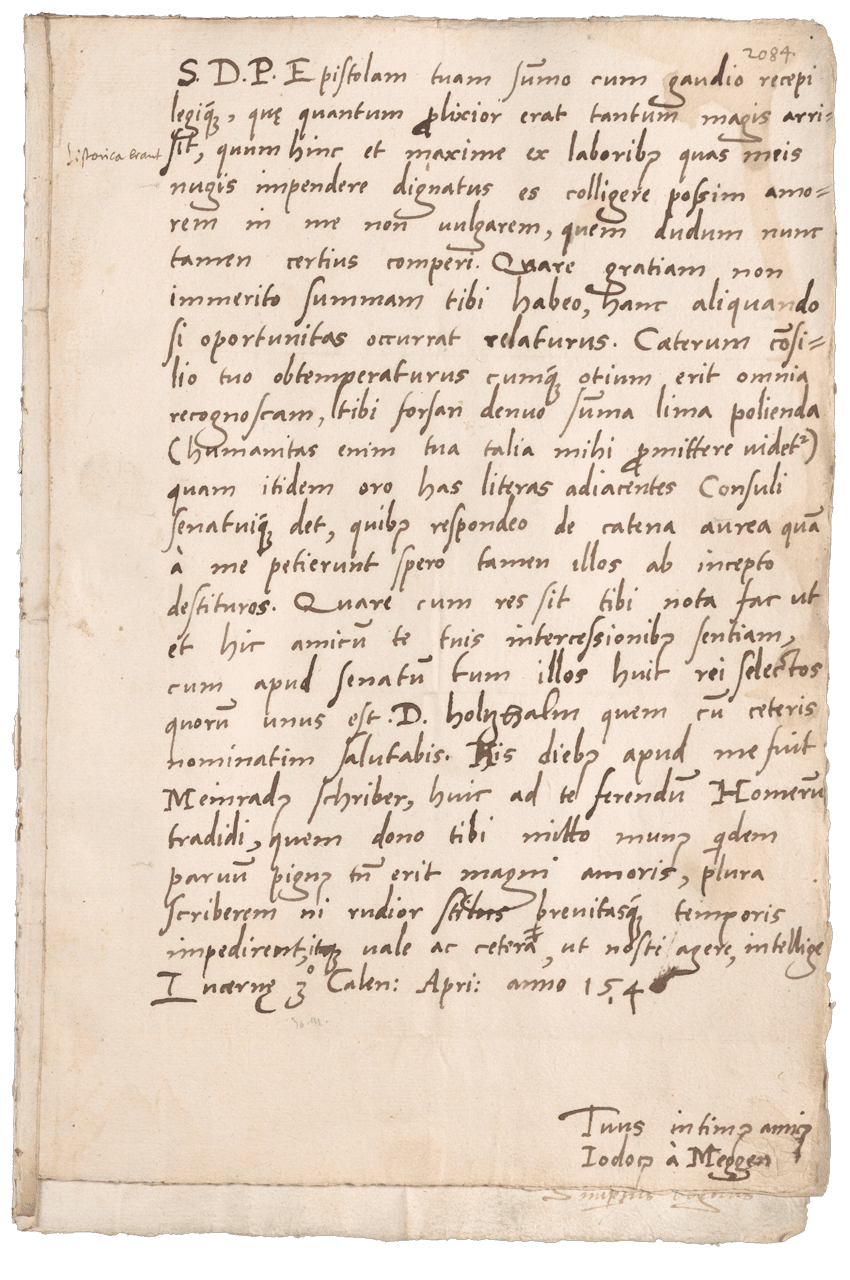 2084.
S. D. P. Epistolam tuam sum̄o cum gaudio recepi
legiq́ꝫ, quę quantum ꝓlixior erat tantum magis arri=
historica erant
sit, quum hinc et maxime ex laboribꝰ quas meis
nugis impendere dignatus es colligere possim amo=
rem in me non uulgarem, quem dudum nunc
tamen certius comperi. Quare gratiam non
immerito summam tibi habeo, hanc aliquando
si oportunitas occurrat relaturus. Cæterum cōsi=
lio tuo obtemperaturus cumq́ꝫ otium erit omnia
recognoscam, tibi forsan denuo sum̄a lima polienda
(humanitas enim tua talia mihi ꝓmittere uidetᷣ)
quam itidem oro has literas adiacentes Consuli
senatuiq́ꝫ det, quibꝰ respondeo de catena aurea quā
à me petierunt spero tamen illos ab incepto
destituros. Quare cum res sit tibi nota fac ut
et hic amicū te tuis intercessionibꝰ sentiam,
cum apud senatū tum illos huic rei selectos
quorū unus est .D. holtzhalm quem cū ceteris
nominatim salutabis. His diebꝰ apud me fuit
Meinradꝰ schriber, huic ad te ferendū Homerū
tradidi, quem dono tibi mitto munꝰ qͥdem
paruū pignꝰ tñ erit magni amoris, plura
scriberem ni rudior stilus breuitasq́ꝫ temporis
impedirent, itaqꝫ uale ac cetera, ut nosti agere, intellige
Lucernę 3° Calen: Apri: anno 1546
Tuus intimꝰ amicꝰ
Iodocꝰ à Meggen